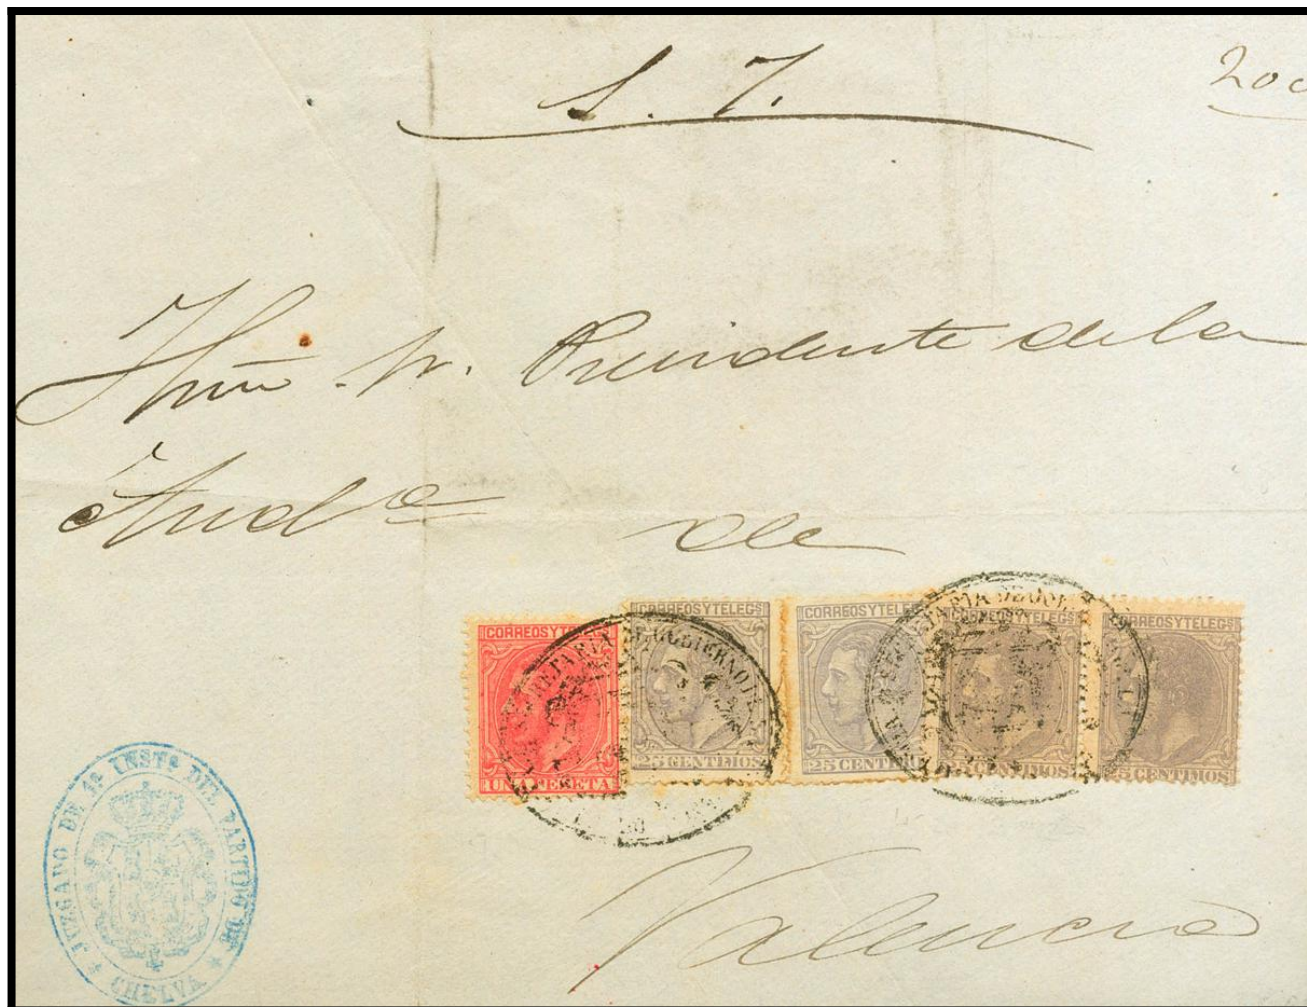 S. J.
200
Yltmo Sr. Presidente de la
Auda de
CORREOS Y TELEGS
UNA PESETA
CORREOS Y TELEGS
25 CENTIMOS
CORREOS Y TELEGS
25 CENTIMOS
CORREOS Y TELEGS
25 CENTIMOS
CORREOS Y TELEGS
25 CENTIMOS
JUZGADO DE 1ª INSTª DEL PARTIDO DE
CHELVA
Valencia